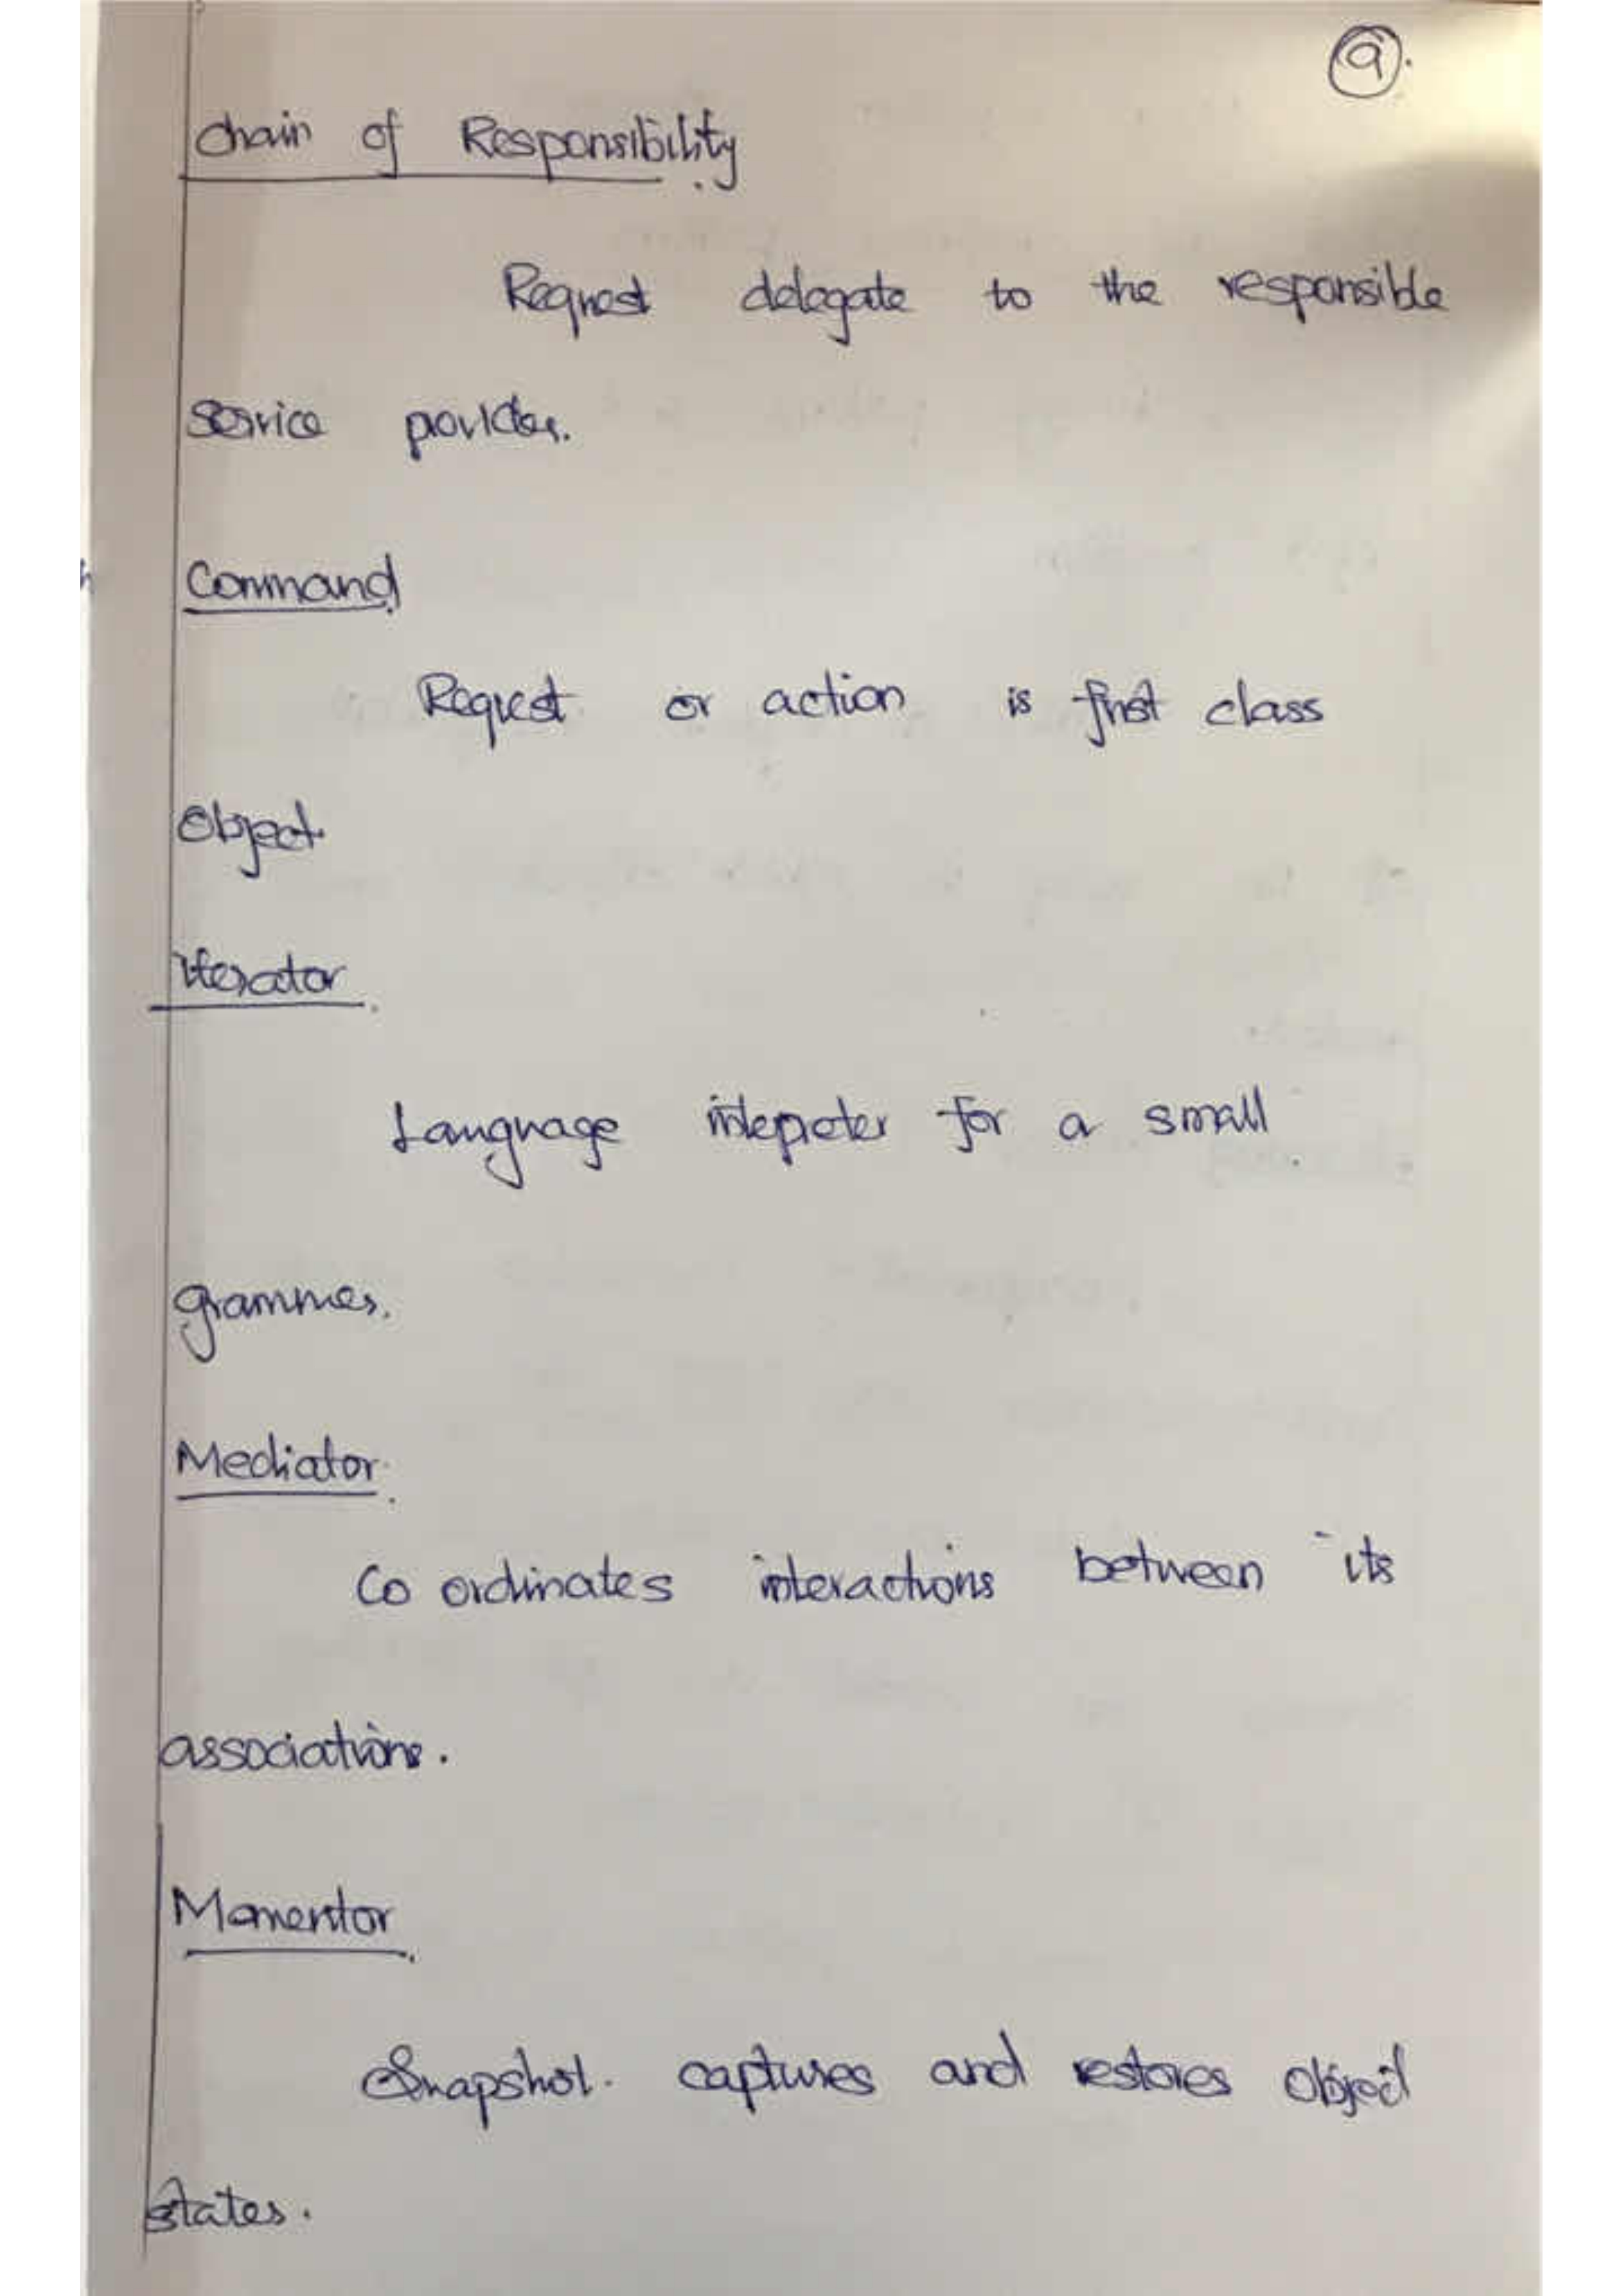 9.
Chain of Responsibility.
Request delegate to the responsible
service provider.
Command
Request or action is first class
Object.
Iterator.
Language intepreter for a small
grammer.
Mediator.
Co ordinates interactions between its
associations.
Momentor.
Snapshot. captures and restores object
states.